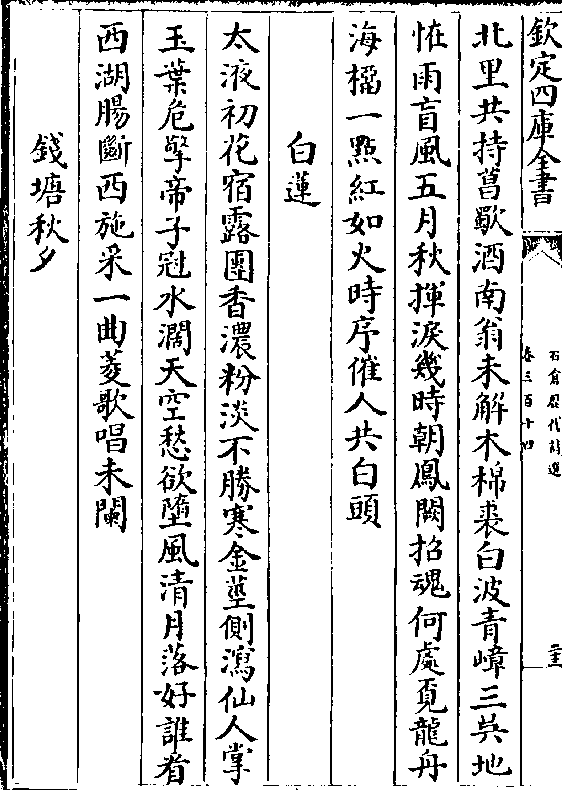 欽定四庫全書
石倉歷代詩選
卷三百十四
二十三
北里共持菖歜酒南翁未解木棉裘白波青嶂三吳地
恠雨盲風五月秋揮淚幾時朝鳳闕招魂何處覓龍舟
海橘一點紅如火時序催人共白頭
白蓮
太液初花宿露團香濃粉淡不勝寒金莖側瀉仙人掌
玉葉危擎帝子冠水濶天空愁欲墮風清月落好誰看
西湖腸斷西施采一曲菱歌唱未闌
錢塘秋夕